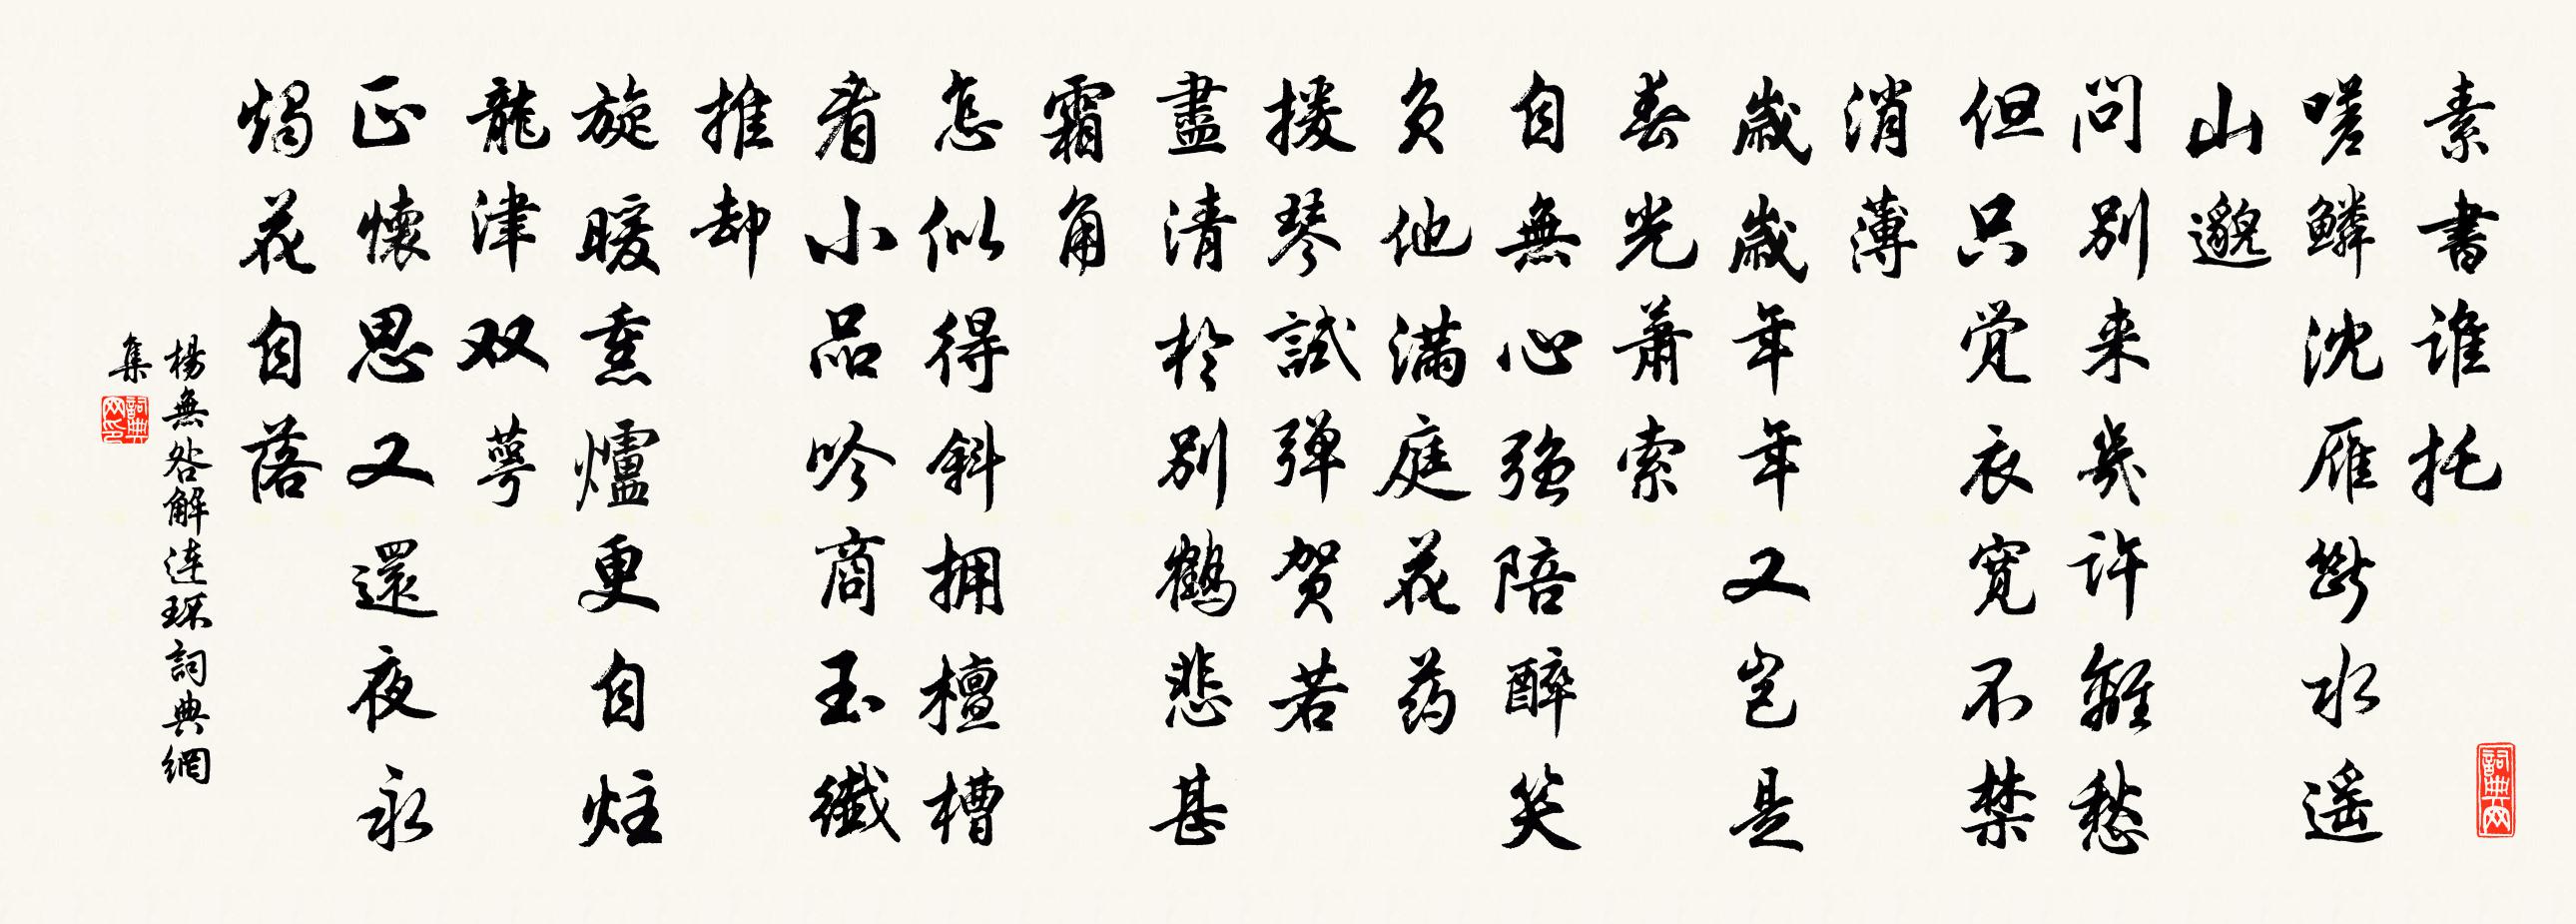 素書谁托
嗟鳞沈雁斷水遥
山邈
問别来幾许離愁
但只觉衣寬不禁
消薄
歲歲年年又岂是
春光萧索
自無心强陪醉笑
负他满庭花药
援琴試弹贺若
盡清於别鹤悲甚
霜角
怎似得斜拥檀槽
看小品吟商玉纖
推却
旋暖熏爐更自炷
龍津双萼
正懷思又還夜永
烛花自落
楊無咎解连环詞典網
集
詞典网
詞典网印